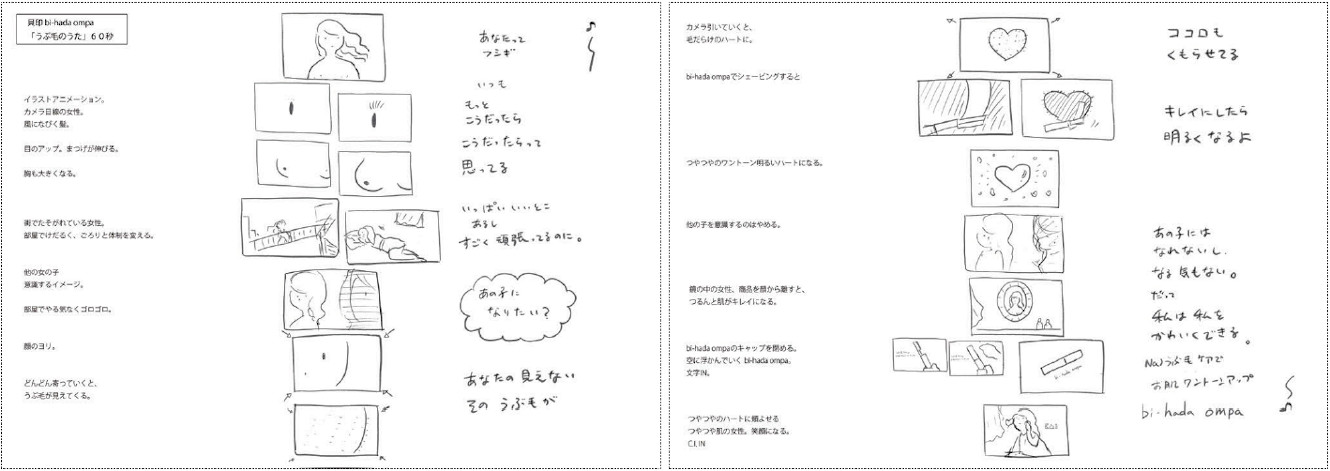 貝印 bi-hada ompa
「うぶ毛のうた」６０秒
イラストアニメーション。
カメラ目線の女性。
風になびく髪。
目のアップ。まつげが伸びる。
胸も大きくなる。
街でたそがれている女性。
部屋でけだるく、ごろりと体制を変える。
他の女の子
意識するイメージ。
部屋でやる気なくゴロゴロ。
顔のヨリ。
どんどん寄っていくと、
うぶ毛が見えてくる。
あなたって
フシギ
いつも
もっと
こうだったら
こうだったらって
思ってる
いっぱいいいとこ
あるし
すごく頑張ってるのに。
あの子に
なりたい?
あなたの見えない
その うぶもが
カメラ引いていくと、
毛だらけのハートに。
bi-hada ompaでシェービングすると
つやつやのワントーン明るいハートになる。
他の子を意識するのはやめる。
鏡の中の女性、商品を顔から離すと、
つるんと肌がキレイになる。
bi-hada ompaのキャップを閉める。
空に浮かんでいく bi-hada ompa。
文字IN。
つやつやのハートに頬よせる
つやつや肌の女性。笑顔になる。
C.I.IN
ココロも
くもらせてる
キレイにしたら
明るくなるよ
あの子には
なれないし、
なる気もない。
だって
私は私を
かわいくできる。
Naうぶ毛ケアで
お肌ワントーンアップ
bi-hada ompa
bi-hada ompa
KAI